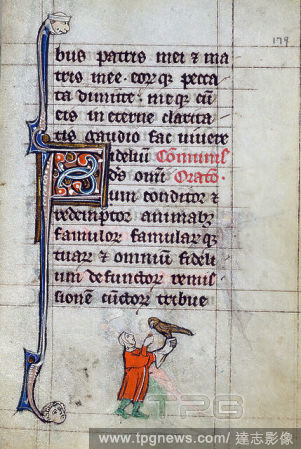 179
bus patris mei et ma
tris mee. eorqȝ pecca
ta dimitte. meqȝ cū
eis in eterne clarita
tis gaudio fac uiuere
Fidelium Cōmunis
ds oniū Oratō
um conditor et
redemptor animabȝ
famulor famularqȝ
tuar et omniū fideli
um defunctor remis
sionē cunctor tribue
TPG
www.tpgnews.com / 達志影像